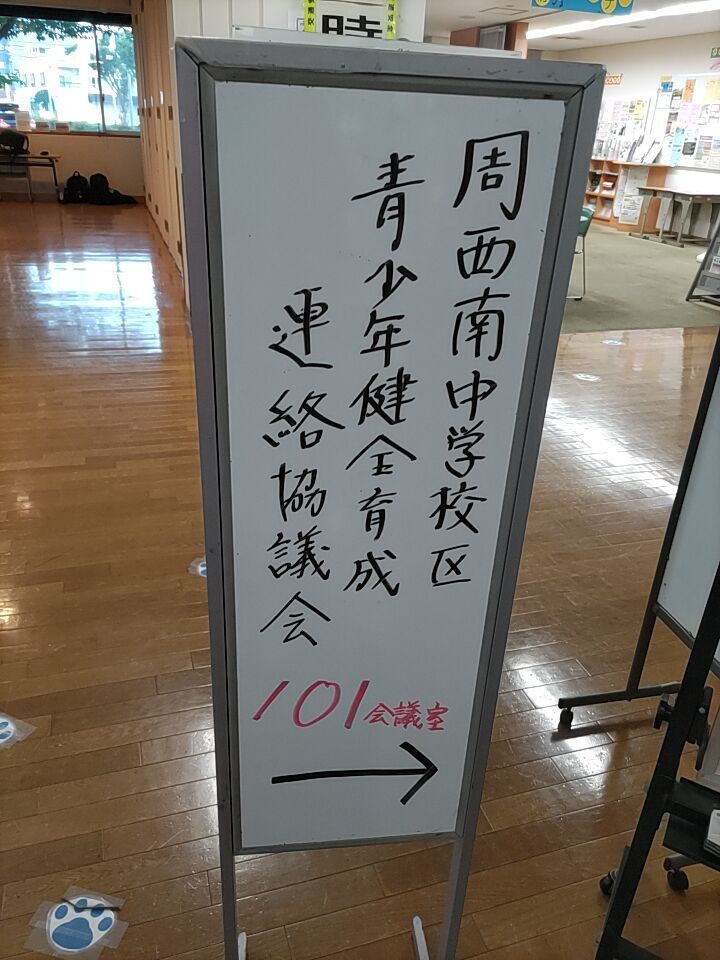 周西南中学校区
青少年健全育成
連絡協議会
101会議室